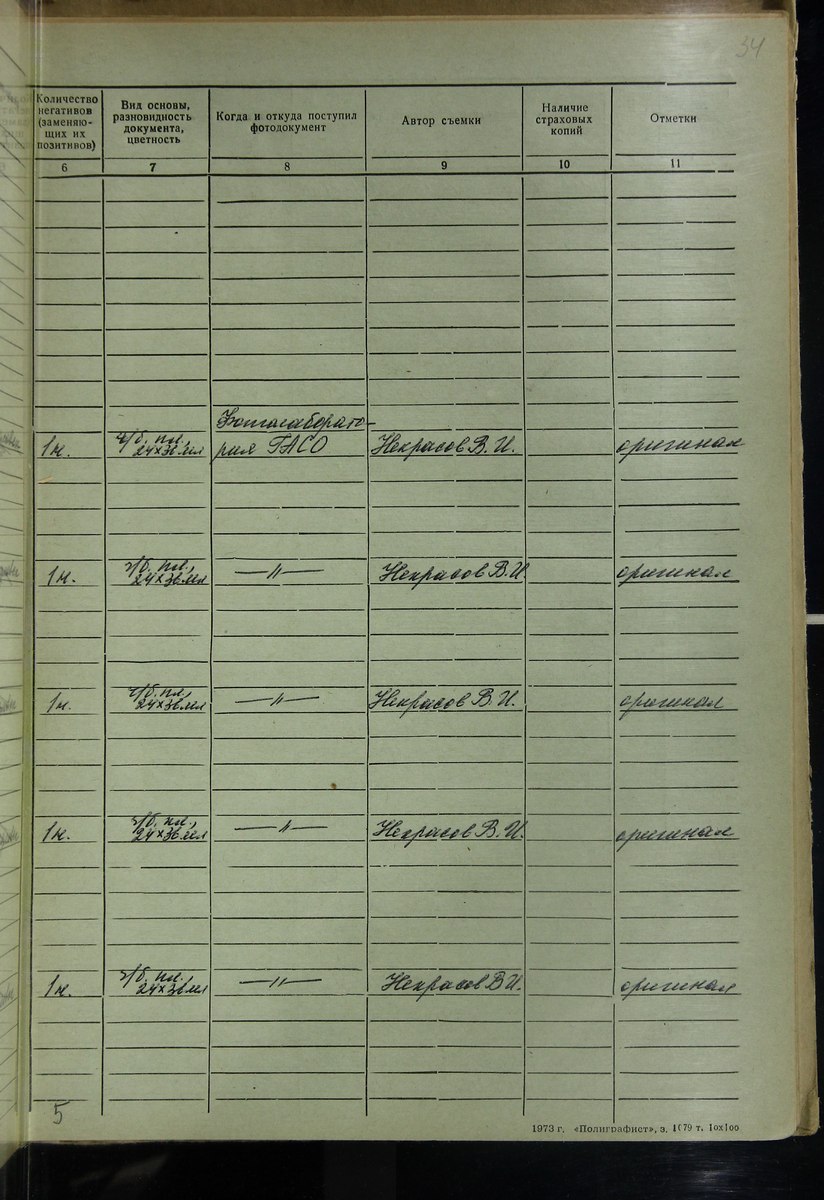 34
Количество негативов (заменяю- щих их позитивов)
Вид основы, разновидность документа, цветность
Когда и откуда поступил фотодокумент
Автор съемки
Наличие страховых копий
Отметки
6 7 8 9 10 11
Фотолаборато-
1н. ч/б. пл., 24×36мм рия ГАСО Некрасов В.И. оригинал
1н. ч/б. пл., 24×36мм —〃— Некрасов В.И. оригинал
1н. ч/б. пл., 24×36мм —〃— Некрасов В.И. оригинал
1н. ч/б. пл., 24×36мм —〃— Некрасов В.И. оригинал
1н. ч/б. пл., 24×36мм —〃— Некрасов В.И. оригинал
5
1973 г. «Полиграфист», з. 1079 т. 10х100